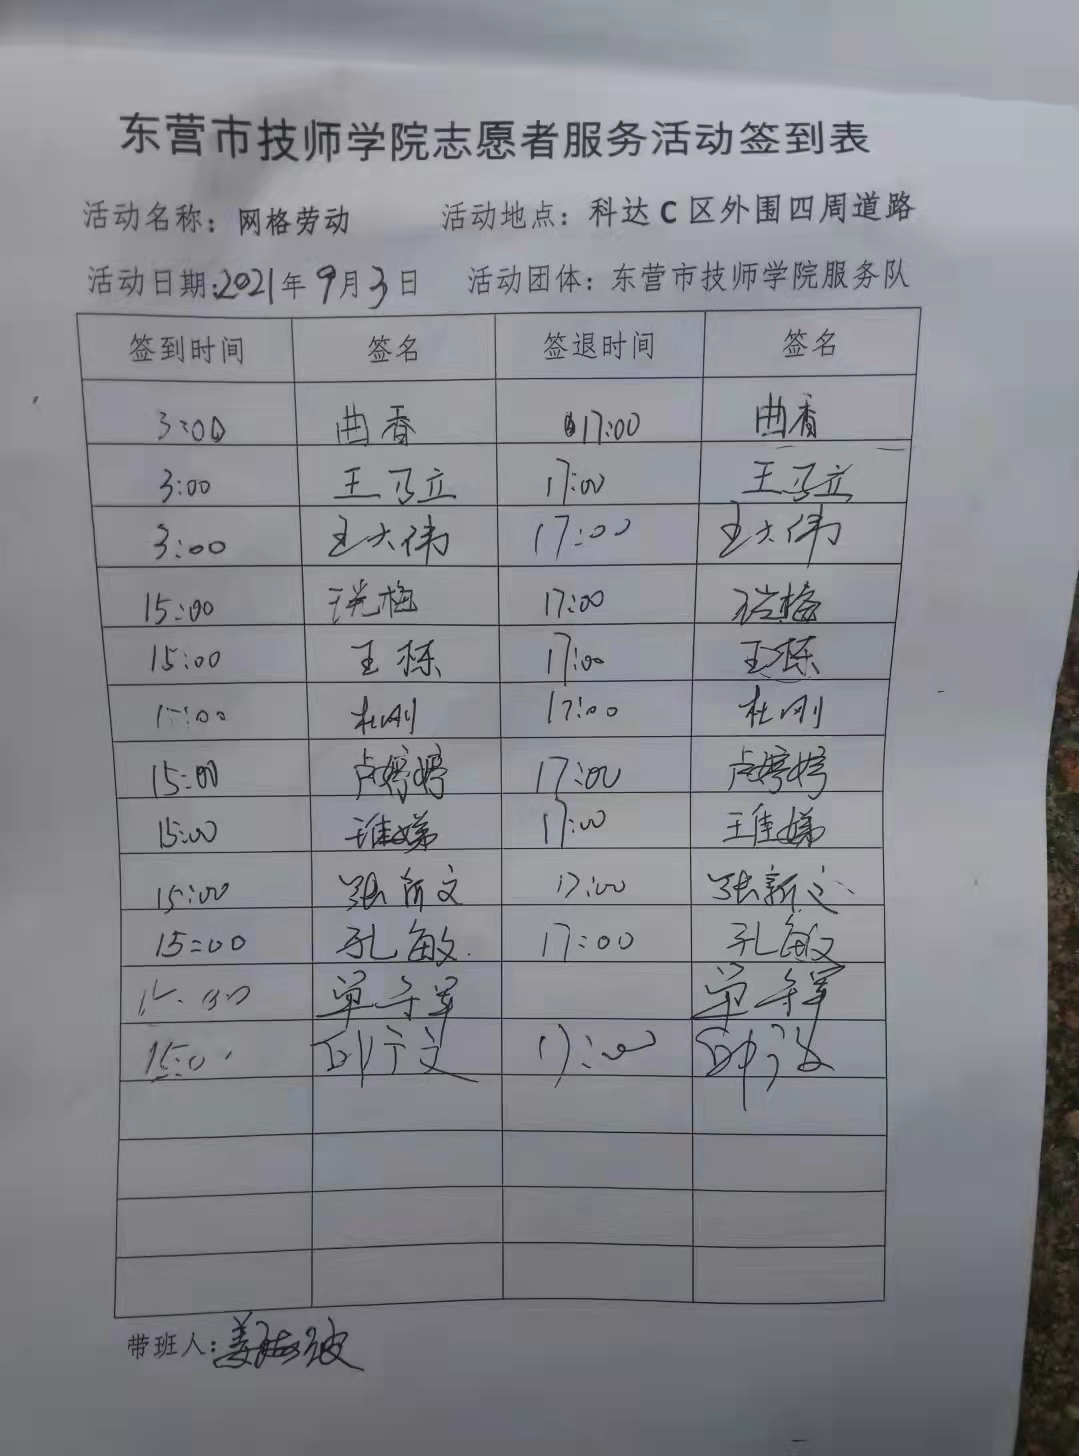 东营市技师学院志愿者服务活动签到表
活动名称：网格劳动 活动地点：科达C区外围四周道路
活动日期:2021年9月3日 活动团体：东营市技师学院服务队
签到时间 签名 签退时间 签名
3:00 曲香 17:00 曲香
3:00 王乃立 17:00 王乃立
3:00 王大伟 17:00 王大伟
15:00 17:00
15:00 王栋 17:00 王栋
15:00 杜刚 17:00 杜刚
15:00 卢婷婷 17:00 卢婷婷
15:00 王佳娣 17:00 王佳娣
15:00 张新文 17:00 张新文
15:00 孔敏 17:00 孔敏
15:00 单
15:0 17:00
带班人：姜波